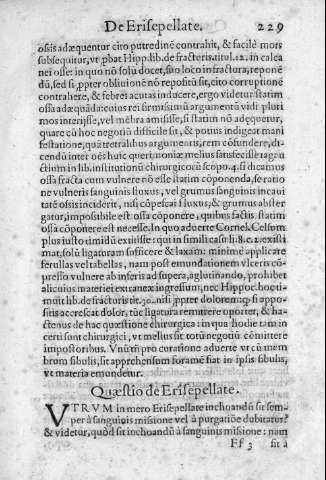 De Erisepellate. 229
ossis adæquentur cito putredinē contrahit, & facilè mors
subsequitur, vt pbat Hipp. lib. de fracturis. titul. 12. in calca
nei osse: in quo nō solū docet, suo loco in fractura, reponē
dū, sed si ppter obliuionē nō repositū sit, cito corruptionē
contrahere, & febres acutas inducere, ergo videtur statim
ossa adæquāda: cuius rei firmissimū argumentū vidi pluri
mos interijsse, vel mēbra amisisse, si statim nō adęquetur,
quare cū hoc negotiū difficile sit, & potius indigeat mani
festatione, quā tret alibus argumentis, rem cōfundere, di-
cendū inter oēs huic queri moniæ melius satisfecisse
ctium in lib. institutionū chirurgicorū scopo. 4. si dicamus
ossa fracta cum vulnere nō esse statim cōponenda, se ratio
ne vulneris sanguinis fluxus, vel grumus sanguinis incaui
tatē ossis inciderit, nisi cōpescaī fluxus, & grumus abster
gator, imposibile est ossa cōponere, quibus factis statim
ossa cōponere est necesse. In quo aduerte Cornel. Celsum
plus iusto timidū exiuisse: qui in simili casu li. 8. c. 1. existi
mat, solū ligaturam sufficere & laxam: minimè applicare
ferullas vel tabellas, nam post emundationem vlceris cō-
pressō vulnere ab inferis ad supera, aglutinando, prohibet
alicuius materiei extaneæ ingressum, nec Hippoc. hoc ti-
muit lib. de fracturis tit. 30. nisi ppter dolorem q si appo-
sitis accrescat dolor, tūc ligatura remittere oportet, & ha-
ctenus de hac quæstione chirurgica: in qua hodie tam in
certi sunt chirurgici, vt mellius sit totū negotiū cōmittere
impostoribus. Vnū tn pro curatione aduerte vt cū mem
brum fibulis, sit apprehensum foramē fiat in ipsis fibulis,
vt materia emundetur.
Quæstio de Erisepellate.
VTRVM in mero Erisepellate inchoandū sit sem-
per à sanguinis missione vel à purgatiōe dubitatur?
& videtur, quòd sit inchoandū à sanguinis missione: nam
Ff 3 sit à